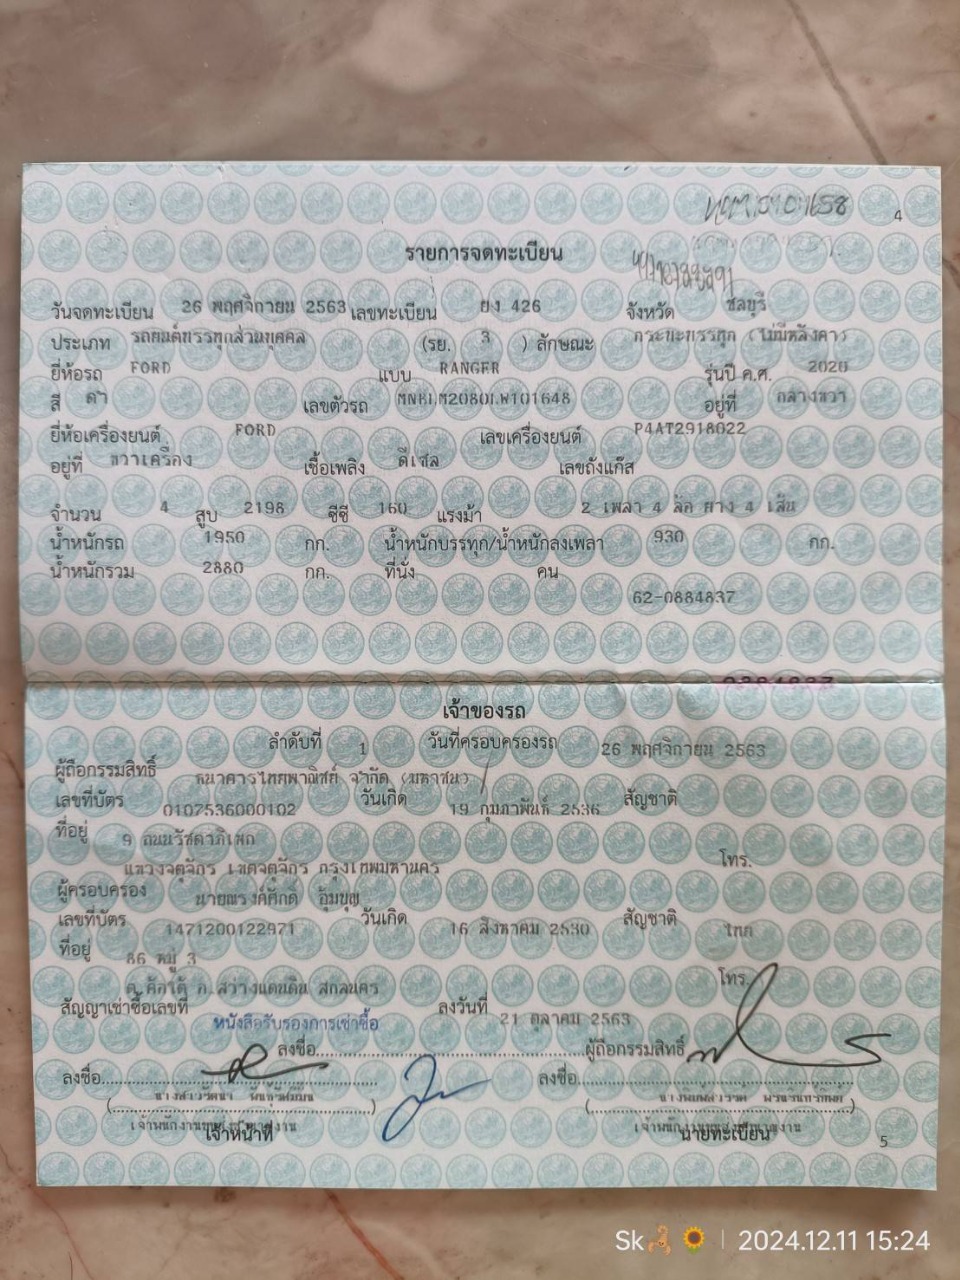 4
รายการจดทะเบียน
วันจดทะเบียน 26 พฤศจิกายน 2563 เลขทะเบียน ยง 426 จังหวัด ชลบุรี
ประเภท รถยนต์บรรทุกส่วนบุคคล (รย. 3 ) ลักษณะ กระบะบรรทุก (ไม่มีหลังคา)
ยี่ห้อรถ FORD แบบ RANGER รุ่นปี ค.ศ. 2020
สี ดำ เลขตัวรถ อยู่ที่ กลางขวา
ยี่ห้อเครื่องยนต์ FORD เลขเครื่องยนต์ P4AT2918022
อยู่ที่ ขวาเครื่อง เชื้อเพลิง ดีเซล เลขถังแก๊ส
จำนวน 4 สูบ 2198 ซีซี 160 แรงม้า 2 เพลา 4 ล้อ ยาง 4 เส้น
น้ำหนักรถ 1950 กก. น้ำหนักบรรทุก/น้ำหนักลงเพลา 930 กก.
น้ำหนักรวม 2880 กก. ที่นั่ง คน
62-0884837
เจ้าของรถ
ลำดับที่ 1 วันที่ครอบครองรถ 26 พฤศจิกายน 2563
ผู้ถือกรรมสิทธิ์ ธนาคารไทยพาณิชย์ จำกัด (มหาชน)
เลขที่บัตร 0107536000102 วันเกิด 19 กุมภาพันธ์ 2536 สัญชาติ
ที่อยู่ 9 ถนนรัชดาภิเษก
แขวงจตุจักร เขตจตุจักร กรุงเทพมหานคร โทร.
ผู้ครอบครอง นายณรงค์ศักดิ์ อุ้มบุญ
เลขที่บัตร 1471200122971 วันเกิด 16 สิงหาคม 2530 สัญชาติ ไทย
ที่อยู่ 86 หมู่ 3
ต.ค้อใต้ อ.สว่างแดนดิน สกลนคร โทร.
สัญญาเช่าซื้อเลขที่ หนังสือรับรองการเช่าซื้อ ลงวันที่ 21 ตุลาคม 2563
ลงชื่อ ผู้ถือกรรมสิทธิ์
ลงชื่อ ลงชื่อ
เจ้าหน้าที่ นายทะเบียน
5
Sk🦂🌻 | 2024.12.11 15:24